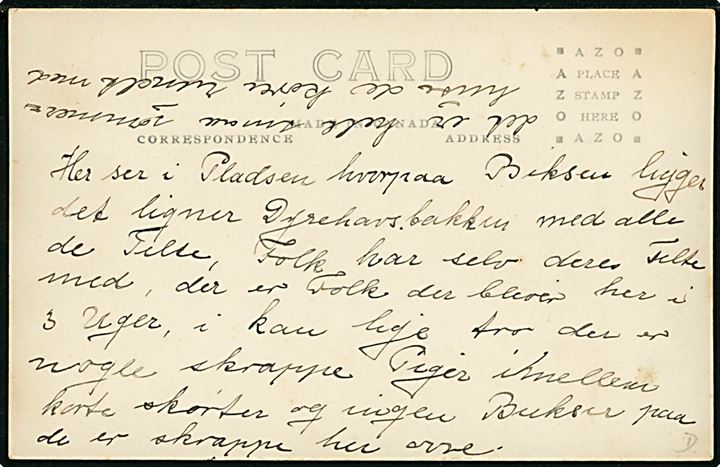 POST CARD
MADE IN CANADA
CORRESPONDENCE ADDRESS
AZO
A PLACE A
Z STAMP Z
O HERE O
AZO
Her ser i Pladsen hvorpaa Biksen ligger
det ligner Dyrehavs.bakken med alle
de Telte, Folk har selv deres Telte
med, der er Folk der bliver her i
3 Uger, i kan lige tro der er
nogle skrappe Piger imellem
korte skørter og ingen Bukser paa
de er skrappe her ovre.
det er hele smaa tømmer=
huse de kører rundt med
D.